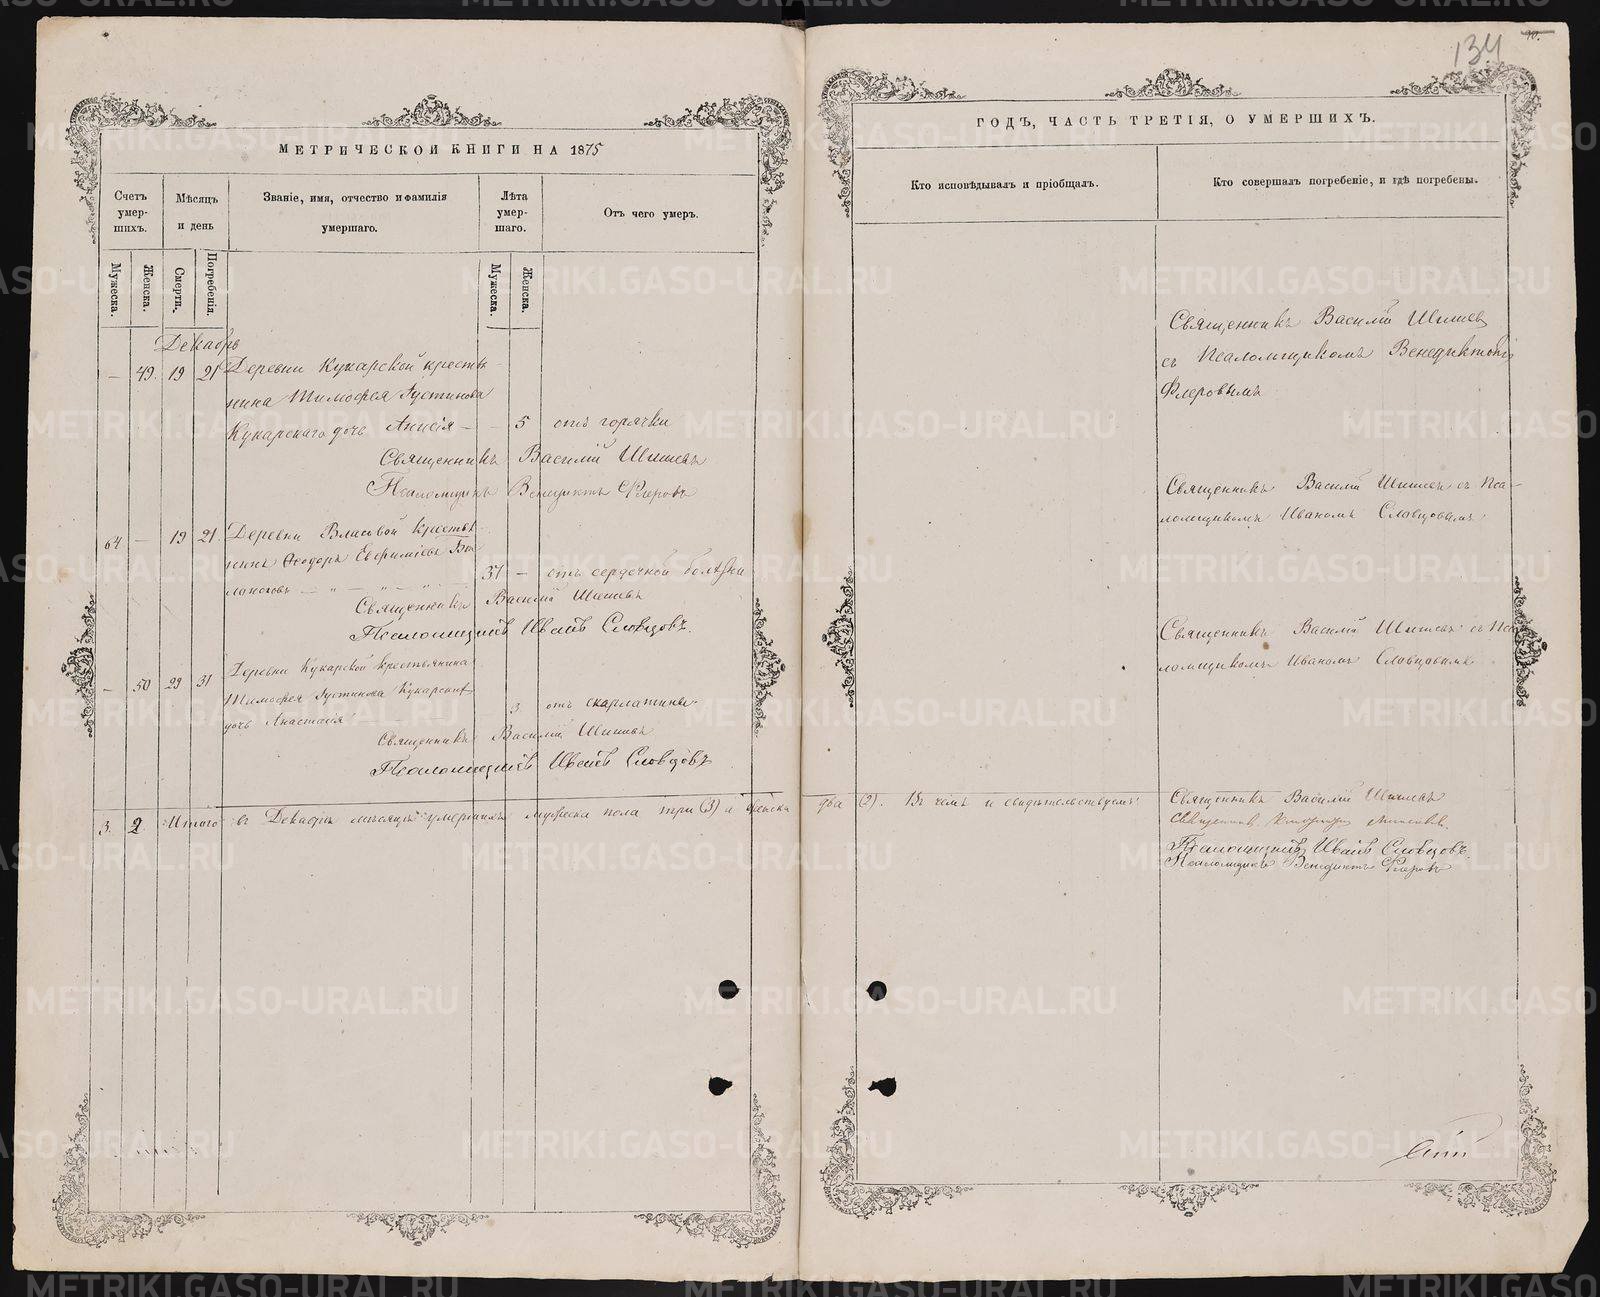 134
МЕТРИЧЕСКОЙ КНИГИ НА 1875
Счетъ умерших.
Мѣсяцъ и день
Званіе, имя, отчество и фамилія умершаго.
Лѣта умершаго.
Отъ чего умеръ.
Мужеска.
Женска.
Смерти.
Погребенія.
Мужеска.
Женска.
Декабрь
— 49. 19 21 Деревни Кукарской крестья-
нина Тимофея Густинова
Кукарскаго дочь Анисія — — 5 отъ горячки
Священникъ Василій Шишевъ
Псаломщикъ Венедиктъ Флеровъ
64 — 19 21. Деревни Власовой крестья-
нинъ Ѳеодоръ Евфиміевъ
37 — отъ сердечной болѣзни
Священникъ Василій Шишевъ
Псаломщикъ Иванъ Словцовъ.
— 50 29 31 Деревни Кукарской крестьянина
Тимофея Густинова Кукарскаго
дочь Анастасія — 3. отъ скарлатины.
Священникъ Василій Шишевъ
Псаломщикъ Иванъ Словцовъ
3. 2. Итого въ Декабрѣ мѣсяцѣ умершихъ мужеска пола три (3) а женска
ГОДЪ, ЧАСТЬ ТРЕТІЯ, О УМЕРШИХЪ.
Кто исповѣдывалъ и пріобщалъ.
Кто совершалъ погребеніе, и гдѣ погребены.
Священникъ Василій Шишевъ
съ Псаломщикомъ Венедиктомъ
Флеровымъ
Священникъ Василій Шишевъ съ Пса-
ломщикомъ Иваномъ Словцовымъ
Священникъ Василій Шишевъ съ Пса
ломщикомъ Иваномъ Словцовымъ
два (2). Въ чемъ и свидѣтельствуемъ:
Священникъ Василій Шишевъ
Священникъ
Псаломщикъ Иванъ Словцовъ.
Псаломщикъ Венедиктъ Флеровъ
METRIKI.GASO-URAL.RU